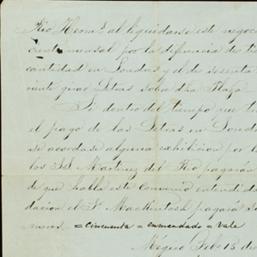 Rio Herm.s al liquidarse este negoc
ciento mensual por la diferencia de ti
cantidad en Londres y el de sesenta
veinte giras Letras sobre dha Plaza
Si dentro del tiempo que
el pago de las Letras en Lond
se acordase alguna exhibicion por
los SS. Martinez del Rio pagarán
de que habla este Convenio entendi
dacion el Sr Mackintosh pagará
nuevos = cincuenta = enmendado = vale
Mexico Feb.o 15 de